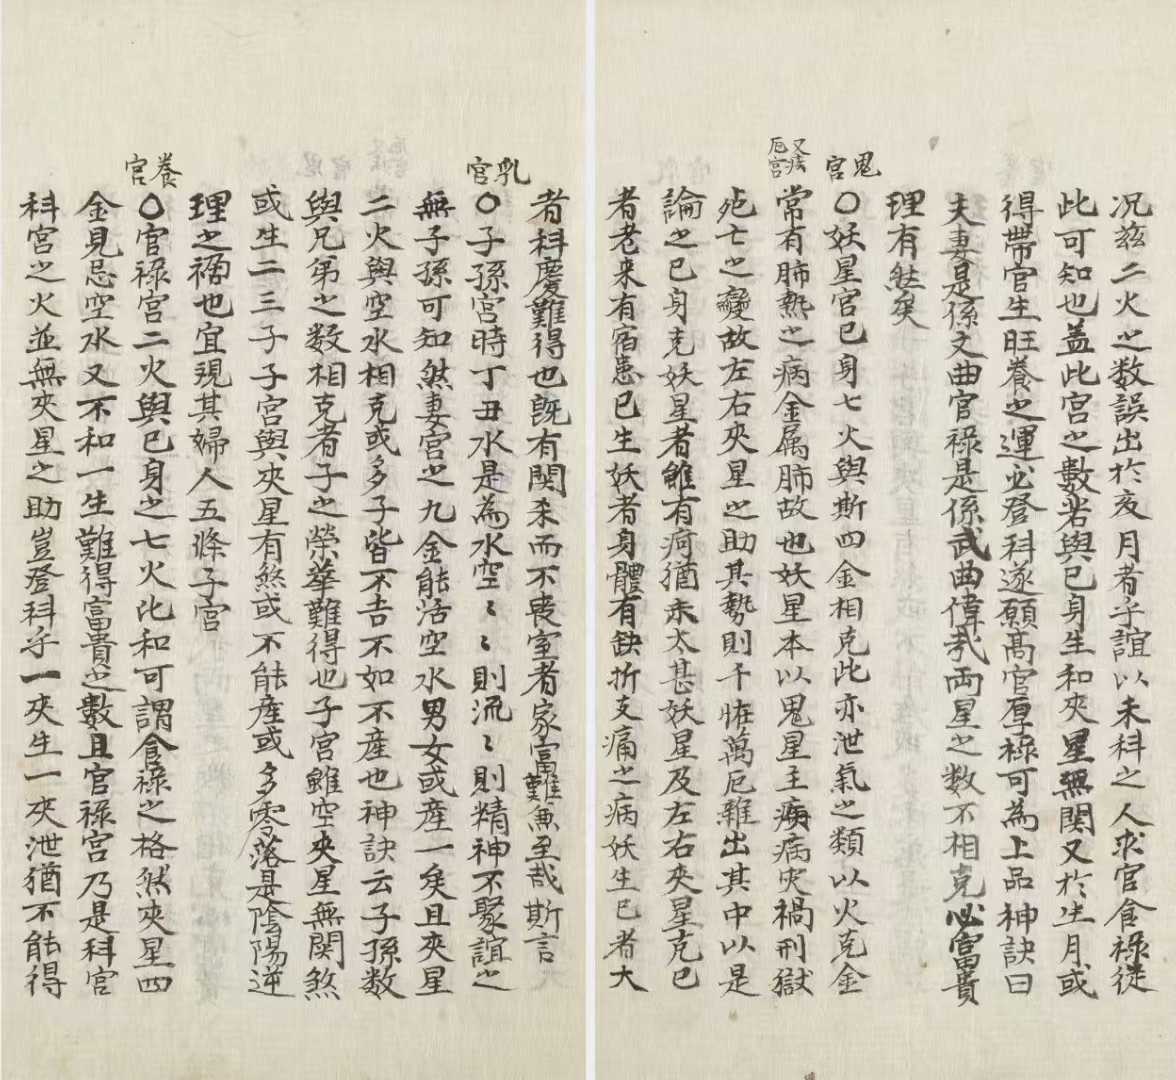 况茲二火之数誤出於亥月者乎誼以未科之人求官食祿徒
此可知也盖此宮之數若與已身生和夾星無関又於生月或
得帶官生旺養之運必登科遂願髙官厚祿可為上品神訣曰
夫妻是係文曲官祿是係武曲偉哉両星之数不相克必富貴
理有然矣
鬼宮
〇妖星宮已身七火與斯四金相克此亦泄氣之類以火克金
又疾厄宮
常有肺熱之病金属肺故也妖星本以鬼星主痪病灾禍刑獄
死亡之變故左右夾星之助其勢則千恠萬厄雜出其中以是
論之已身克妖星者雖有疴猶未太甚妖星及左右夾星克已
者老来有宿患已生妖者身體有缺折支痛之病妖生已者大
者科慶難得也旣有関杀而不丧室者家冨難無至哉斯言
乳宮
〇子孫宮時丁丑水是為水空〻則流〻則精神不聚誼之
無子孫可知然妻宮之九金能活空水男女或産一矣且夾星
二火與空水相克或多子皆不吉不如不産也神訣云子孫数
與兄弟之数相克者子之榮華難得也子宮雖空夾星無関煞
或生二三子子宮與夾星有煞或不能産或多零落是陰陽逆
理之禍也宜現其婦人五條子宮
養宮
〇官祿宮二火與已身之七火比和可謂食祿之格然夾星四
金見忌空水又不和一生難得富貴之數且官祿宮乃是科宮
科宮之火並無夾星之助豈登科乎一夾生一夾泄猶不能得